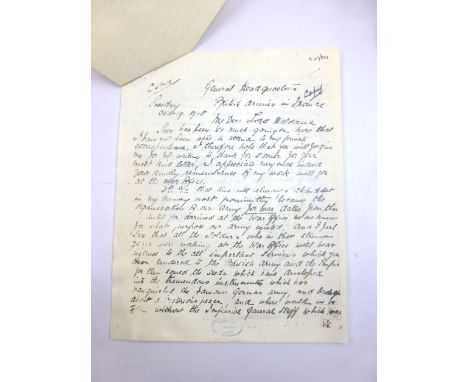 Copy
General Headquarters
Copy
British Armies in France
Tuesday
My Dear Lord Haldane
There has been so much going on here that
I have not been able to attend to my private
correspondence, I therefore hope that you will forgive
me for not writing to thank you sooner for your
most kind letter, I appreciate very much indeed
your kindly remembrance of my work with you
at the War Office.
that time will always stand out
in my memory most prominently because the
organisation of our Army for War dates from then
Until you arrived at the War Office no one knew
for what purpose our army existed, and I feel
that all the officers who in those strenuous
years were working at the War Office will bear
witness to the all important services which you
then rendered to the British Army and the Empire
for then sowed the seeds which have developed
into the tremendous instrument which has
vanquished the famous German army, and brought
about a victorious peace, and where would we be
without the Imperial General Staff which was